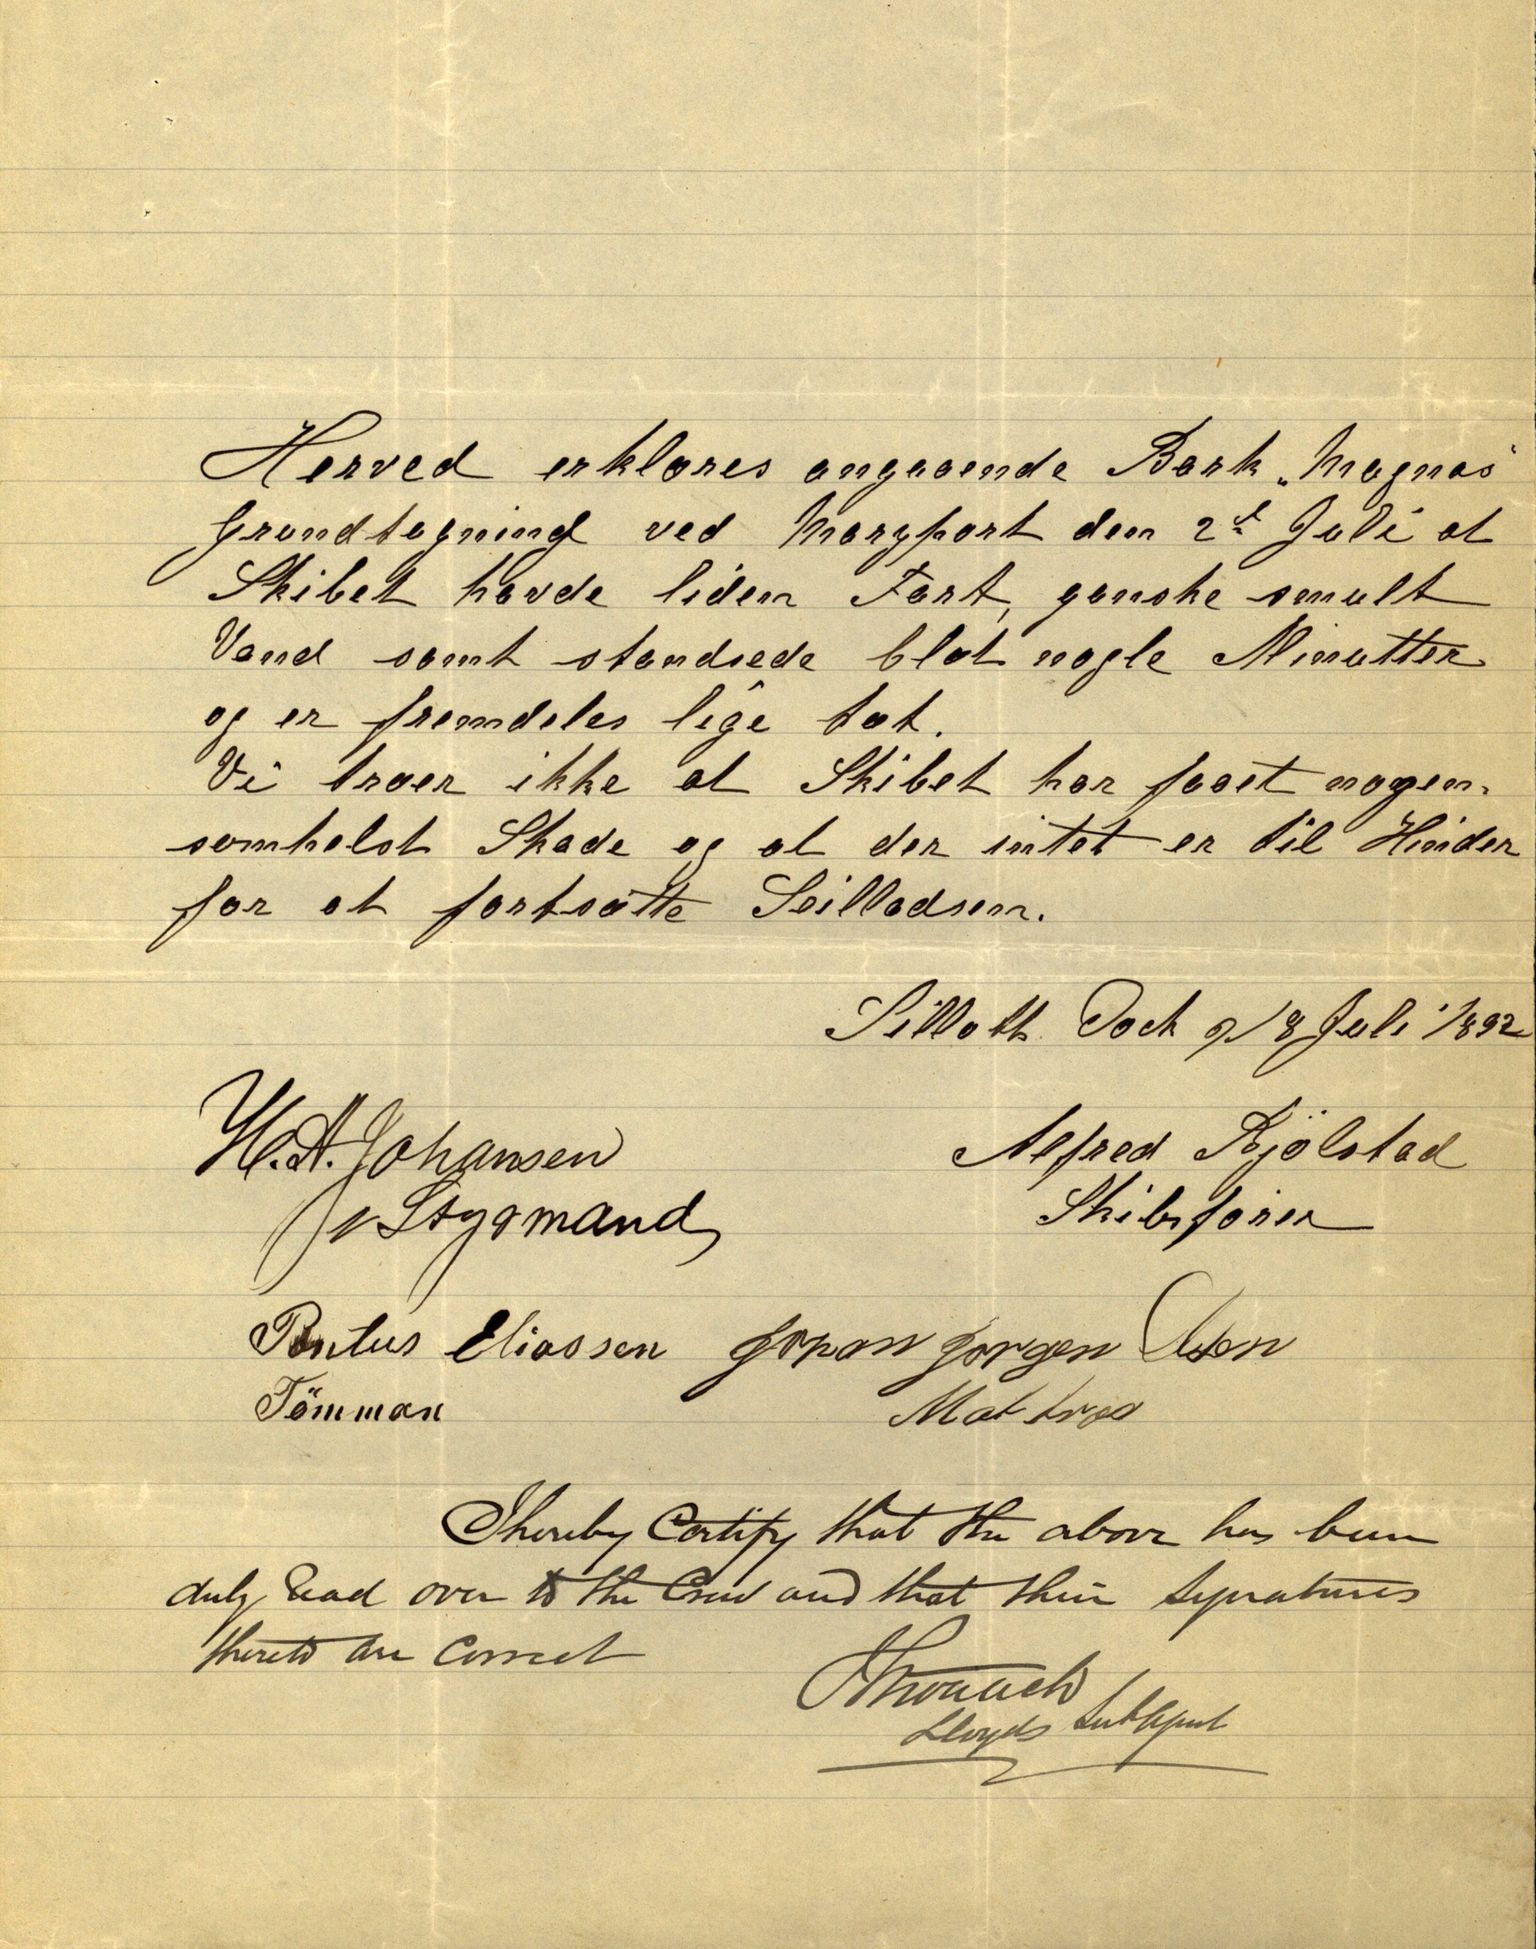 Herved erklæres angaaende Bark „Magnas"
Grundtagning ved Maryport den 2d Juli at
Skibet havde liden Fart, ganske smult
Vand samt standsede blot nogle Minutter
og er fremdeles lige tæt.
Vi troer ikke at Skibet har faaet nogen-
somhelst Skade og at der intet er til Hinder
for at fortsætte Seilladsen.
Silloth Dock 18 Juli 1892
H. A. Johansen
Styrmand
Alfred Kjölstad
Skibsfører
Pontus Eliassen
Tömman
Johan Jørgen Olsen
Matros
I hereby Certify that the above has been
duly Read over to the Crew and that their Signatures
thereto are Correct
Lloyds Sub Agent